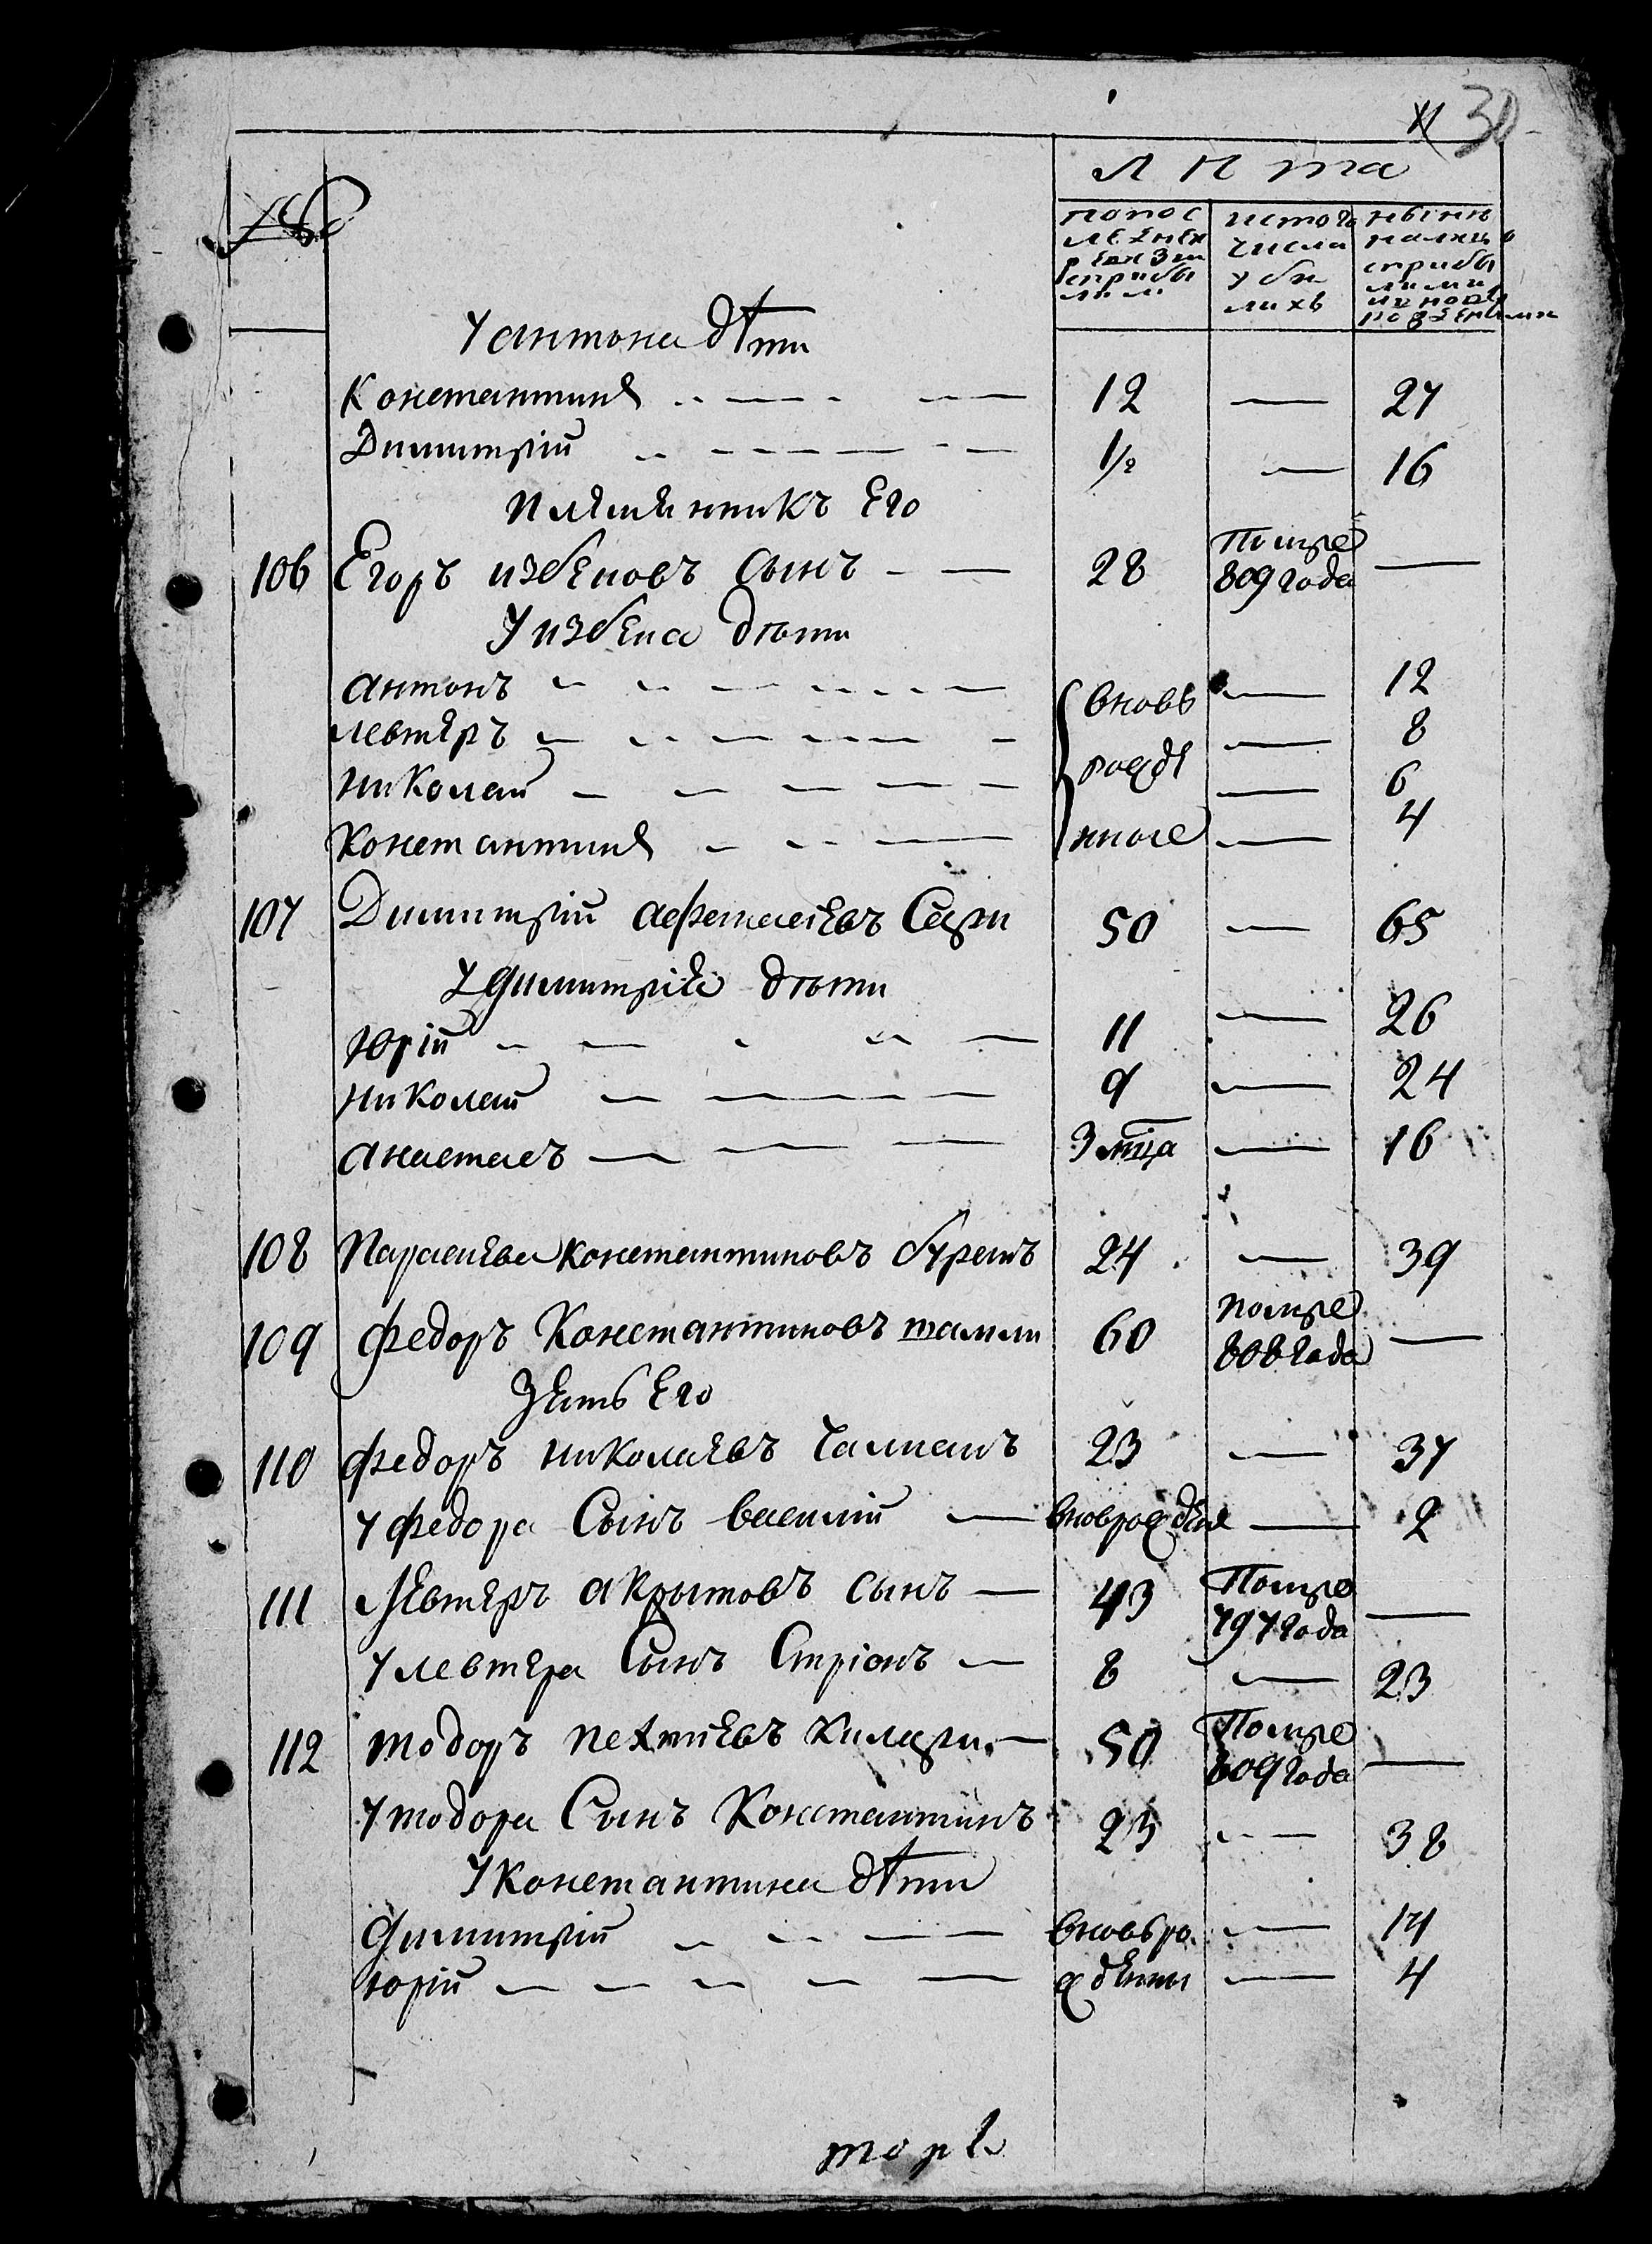 30
№
лѣта
попос
леднеи
ревизи
сприбы
лми
истого
числа
убы
лихъ
нынѣ
налицо
сприбы
лими
у Антона дѣти
Константинъ 12 — 27
Димитрій 1/2 — 16
племянникъ Его
106 Егоръ избеновъ Сынъ 28 Помре 809 года —
У избена дѣти
антонъ вновь — 12
левтеръ рожде — 8
николай — 6
Константинъ нные — 4
107 Димитрій афанасіевъ Сари 50 — 65
У Димитрія дѣти
юрій 11 — 26
николай 9 — 24
анастасъ 3 мца — 16
108 Параскева константиновъ 24 — 39
109 Федоръ Константиновъ 60 помре 808 года —
Зять Его
110 Федоръ николаевъ Чалпанъ 23 — 37
у Федора Сынъ василій вноврожден — 2
111 Левтеръ акритовъ сынъ 43 Помре 797 года —
у левтера Сынъ Стріонъ 8 — 23
112 тодоръ 50 Помре 809 года —
у тодора Сынъ Константинъ 23 — 38
У Константина дѣти
Димитрій вновьро — 14
юрій ждены — 4